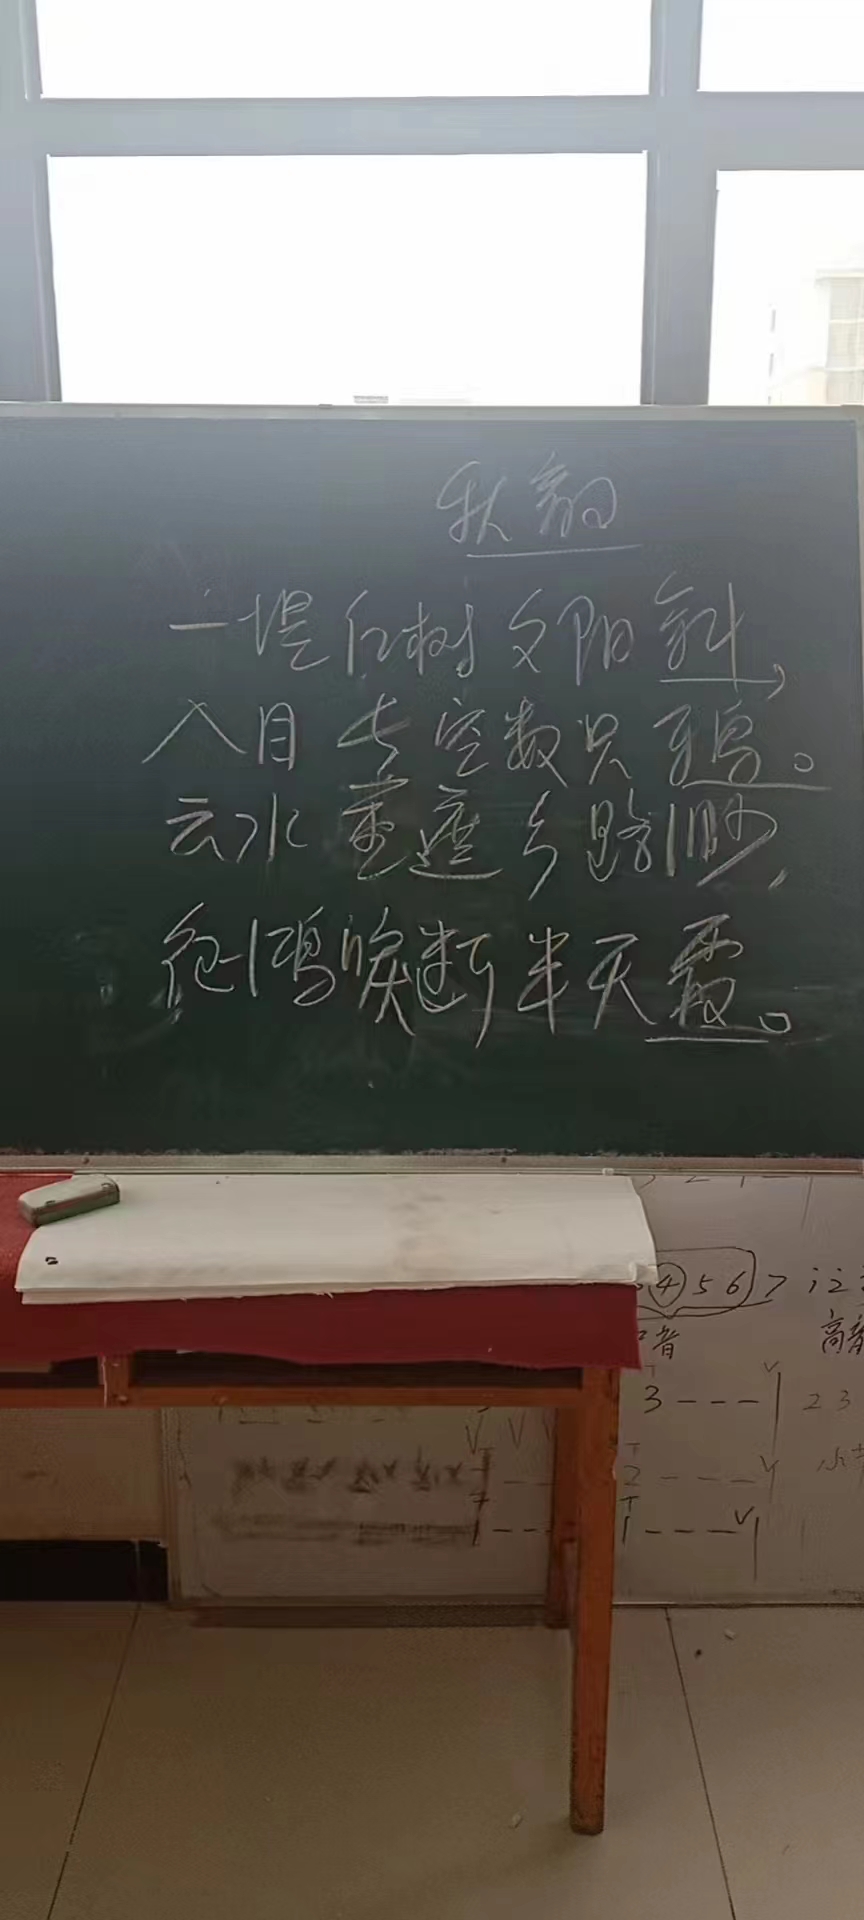 秋韵
一堤红树夕阳斜,
入目长空数只鸦。
云水重遮乡路渺,
征鸿唳断半天霞。
4 5 6 7 i 2
高音
3 - - - | 2 3
2 - - -
1 - - - |